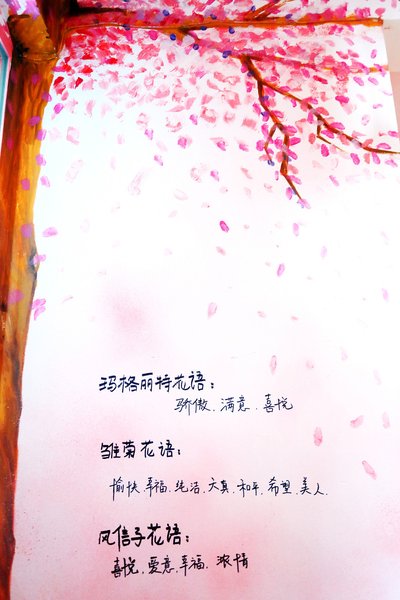 玛格丽特花语：
骄傲、满意、喜悦
雏菊花语：
愉快、幸福、纯洁、天真、和平、希望、美人、
风信子花语：
喜悦、爱意、幸福、浓情